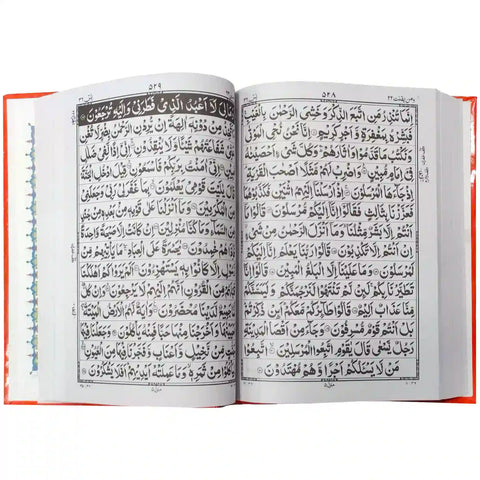 ٥٢٨
اِنَّمَا تُنْذِرُ مَنِ اتَّبَعَ الذِّكْرَ وَخَشِيَ الرَّحْمٰنَ بِالْغَيْبِ
فَبَشِّرْهُ بِمَغْفِرَةٍ وَّاَجْرٍ كَرِيْمٍ اِنَّا نَحْنُ نُحْيِ الْمَوْتٰى
وَنَكْتُبُ مَا قَدَّمُوْا وَاٰثَارَهُمْ وَكُلَّ شَيْءٍ اَحْصَيْنٰهُ
فِيْٓ اِمَامٍ مُّبِيْنٍ وَاضْرِبْ لَهُمْ مَّثَلًا اَصْحٰبَ الْقَرْيَةِ اِذْ
جَآءَهَا الْمُرْسَلُوْنَ اِذْ اَرْسَلْنَآ اِلَيْهِمُ اثْنَيْنِ فَكَذَّبُوْهُمَا
فَعَزَّزْنَا بِثَالِثٍ فَقَالُوْٓا اِنَّآ اِلَيْكُمْ مُّرْسَلُوْنَ قَالُوْا مَآ
اَنْتُمْ اِلَّا بَشَرٌ مِّثْلُنَا وَمَآ اَنْزَلَ الرَّحْمٰنُ مِنْ شَيْءٍ
اِنْ اَنْتُمْ اِلَّا تَكْذِبُوْنَ قَالُوْا رَبُّنَا يَعْلَمُ اِنَّآ اِلَيْكُمْ
لَمُرْسَلُوْنَ وَمَا عَلَيْنَآ اِلَّا الْبَلٰغُ الْمُبِيْنُ قَالُوْٓا اِنَّا
تَطَيَّرْنَا بِكُمْ لَئِنْ لَّمْ تَنْتَهُوْا لَنَرْجُمَنَّكُمْ وَلَيَمَسَّنَّكُمْ
مِّنَّا عَذَابٌ اَلِيْمٌ قَالُوْا طَآئِرُكُمْ مَّعَكُمْ اَئِنْ ذُكِّرْتُمْ
بَلْ اَنْتُمْ قَوْمٌ مُّسْرِفُوْنَ وَجَآءَ مِنْ اَقْصَا الْمَدِيْنَةِ
رَجُلٌ يَّسْعٰى قَالَ يٰقَوْمِ اتَّبِعُوا الْمُرْسَلِيْنَ اتَّبِعُوْا
مَنْ لَّا يَسْئَلُكُمْ اَجْرًا وَّهُمْ مُّهْتَدُوْنَ
٥٢٩
مَالِيَ لَآ اَعْبُدُ الَّذِيْ فَطَرَنِيْ وَاِلَيْهِ تُرْجَعُوْنَ
ءَاَتَّخِذُ مِنْ دُوْنِهٖٓ اٰلِهَةً اِنْ يُّرِدْنِ الرَّحْمٰنُ بِضُرٍّ لَّا تُغْنِ
عَنِّيْ شَفَاعَتُهُمْ شَيْئًا وَّلَا يُنْقِذُوْنِ اِنِّيْٓ اِذًا لَّفِيْ ضَلٰلٍ
مُّبِيْنٍ اِنِّيْٓ اٰمَنْتُ بِرَبِّكُمْ فَاسْمَعُوْنِ قِيْلَ ادْخُلِ
الْجَنَّةَ قَالَ يٰلَيْتَ قَوْمِيْ يَعْلَمُوْنَ بِمَا غَفَرَ لِيْ رَبِّيْ وَجَعَلَنِيْ
مِنَ الْمُكْرَمِيْنَ وَمَآ اَنْزَلْنَا عَلٰى قَوْمِهٖ مِنْۢ بَعْدِهٖ مِنْ جُنْدٍ
مِّنَ السَّمَآءِ وَمَا كُنَّا مُنْزِلِيْنَ اِنْ كَانَتْ اِلَّا صَيْحَةً وَّاحِدَةً
فَاِذَا هُمْ خٰمِدُوْنَ يٰحَسْرَةً عَلَى الْعِبَادِ مَا يَاْتِيْهِمْ مِّنْ
رَّسُوْلٍ اِلَّا كَانُوْا بِهٖ يَسْتَهْزِءُوْنَ اَلَمْ يَرَوْا كَمْ اَهْلَكْنَا
قَبْلَهُمْ مِّنَ الْقُرُوْنِ اَنَّهُمْ اِلَيْهِمْ لَا يَرْجِعُوْنَ وَاِنْ كُلٌّ
لَّمَّا جَمِيْعٌ لَّدَيْنَا مُحْضَرُوْنَ وَاٰيَةٌ لَّهُمُ الْاَرْضُ الْمَيْتَةُ
اَحْيَيْنٰهَا وَاَخْرَجْنَا مِنْهَا حَبًّا فَمِنْهُ يَاْكُلُوْنَ وَجَعَلْنَا فِيْهَا
جَنّٰتٍ مِّنْ نَّخِيْلٍ وَّاَعْنَابٍ وَّفَجَّرْنَا فِيْهَا مِنَ الْعُيُوْنِ
لِيَاْكُلُوْا مِنْ ثَمَرِهٖ وَمَا عَمِلَتْهُ اَيْدِيْهِمْ اَفَلَا يَشْكُرُوْنَ